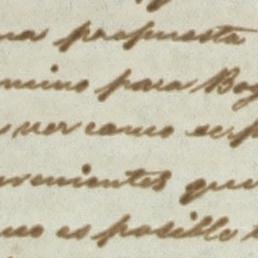 na propuesta
mino para Bog
a ver como se p
venientes que
no es posible